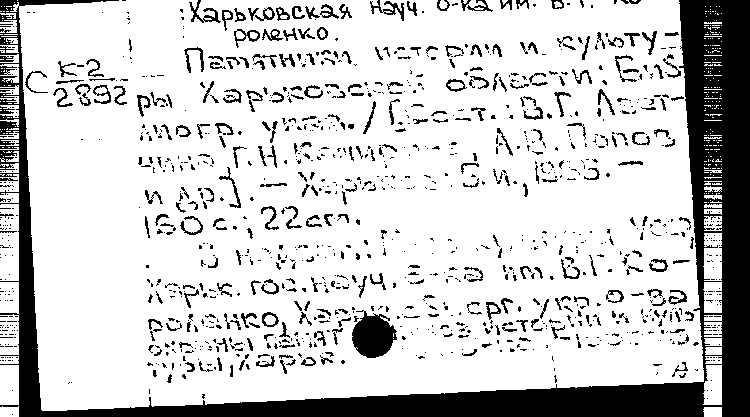 Харьковская науч. б-ка им. В.Г. Ко-
роленко.
С К-2
2892
Памятники истории и культу-
ры Харьковской области: Биб-
лиогр. указ. / [Сост.: В.Г.
Г.Н. А.В. Попов
и др.]. — Харьков: Б.и., —
160 с.; 22 см.
В надзаг.: культуры
Харьк. гос. науч. б-ка им. В.Г. Ко-
роленко, Харьк. обл. орг. укр. о-ва
охраны памят истории и куль-
туры, Харьк.